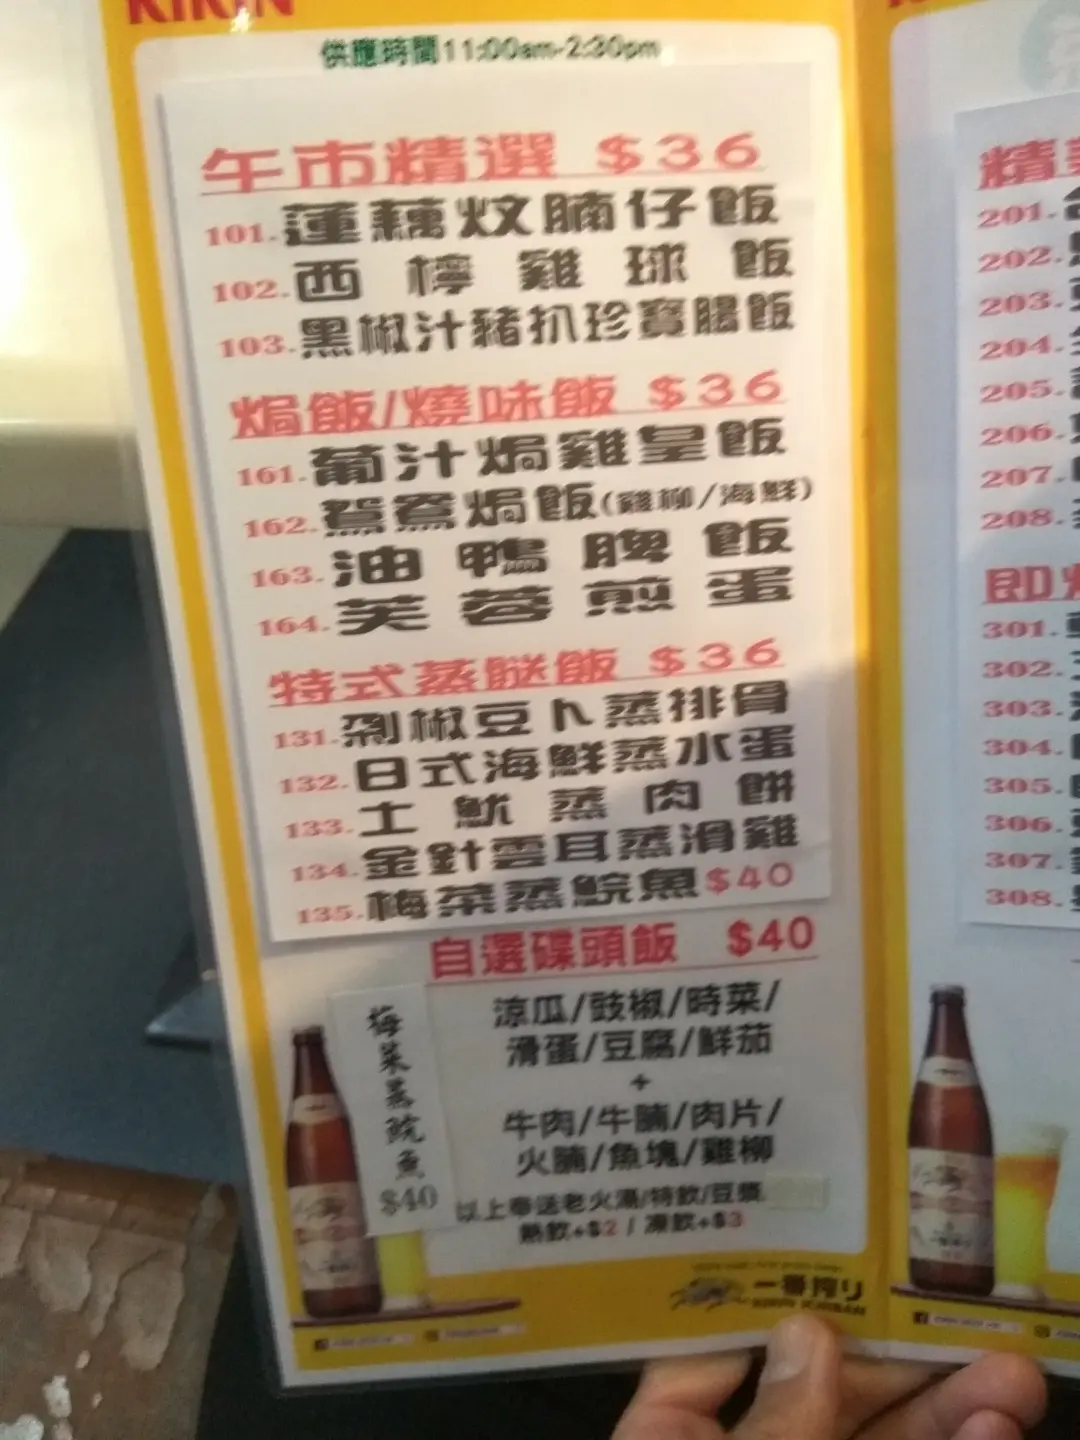 KIRIN
供應時間11:00am-2:30pm
午市精選 $36
101.蓮藕炆腩仔飯
102.西檸雞球飯
103.黑椒汁豬扒珍寶腸飯
焗飯/燒味飯 $36
161.葡汁焗雞皇飯
162.鴛鴦焗飯(雞柳/海鮮)
163.油鴨髀飯
164.芙蓉煎蛋
特式蒸餸飯 $36
131.剁椒豆卜蒸排骨
132.日式海鮮蒸水蛋
133.土魷蒸肉餅
134.金針雲耳蒸滑雞
135.梅菜蒸鯇魚$40
自選碟頭飯 $40
涼瓜/豉椒/時菜/
滑蛋/豆腐/鮮茄
+
牛肉/牛腩/肉片/
火腩/魚塊/雞柳
以上奉送老火湯/特飲/豆漿
熱飲+$2 / 凍飲+$3
梅菜蒸鯇魚
$40
一番搾り
KIRIN ICHIBAN
精
201.
202.
203.
204.
205.
206.
207.
208.
即
301.
302.
303.
304.
305.
306.
307.
308.